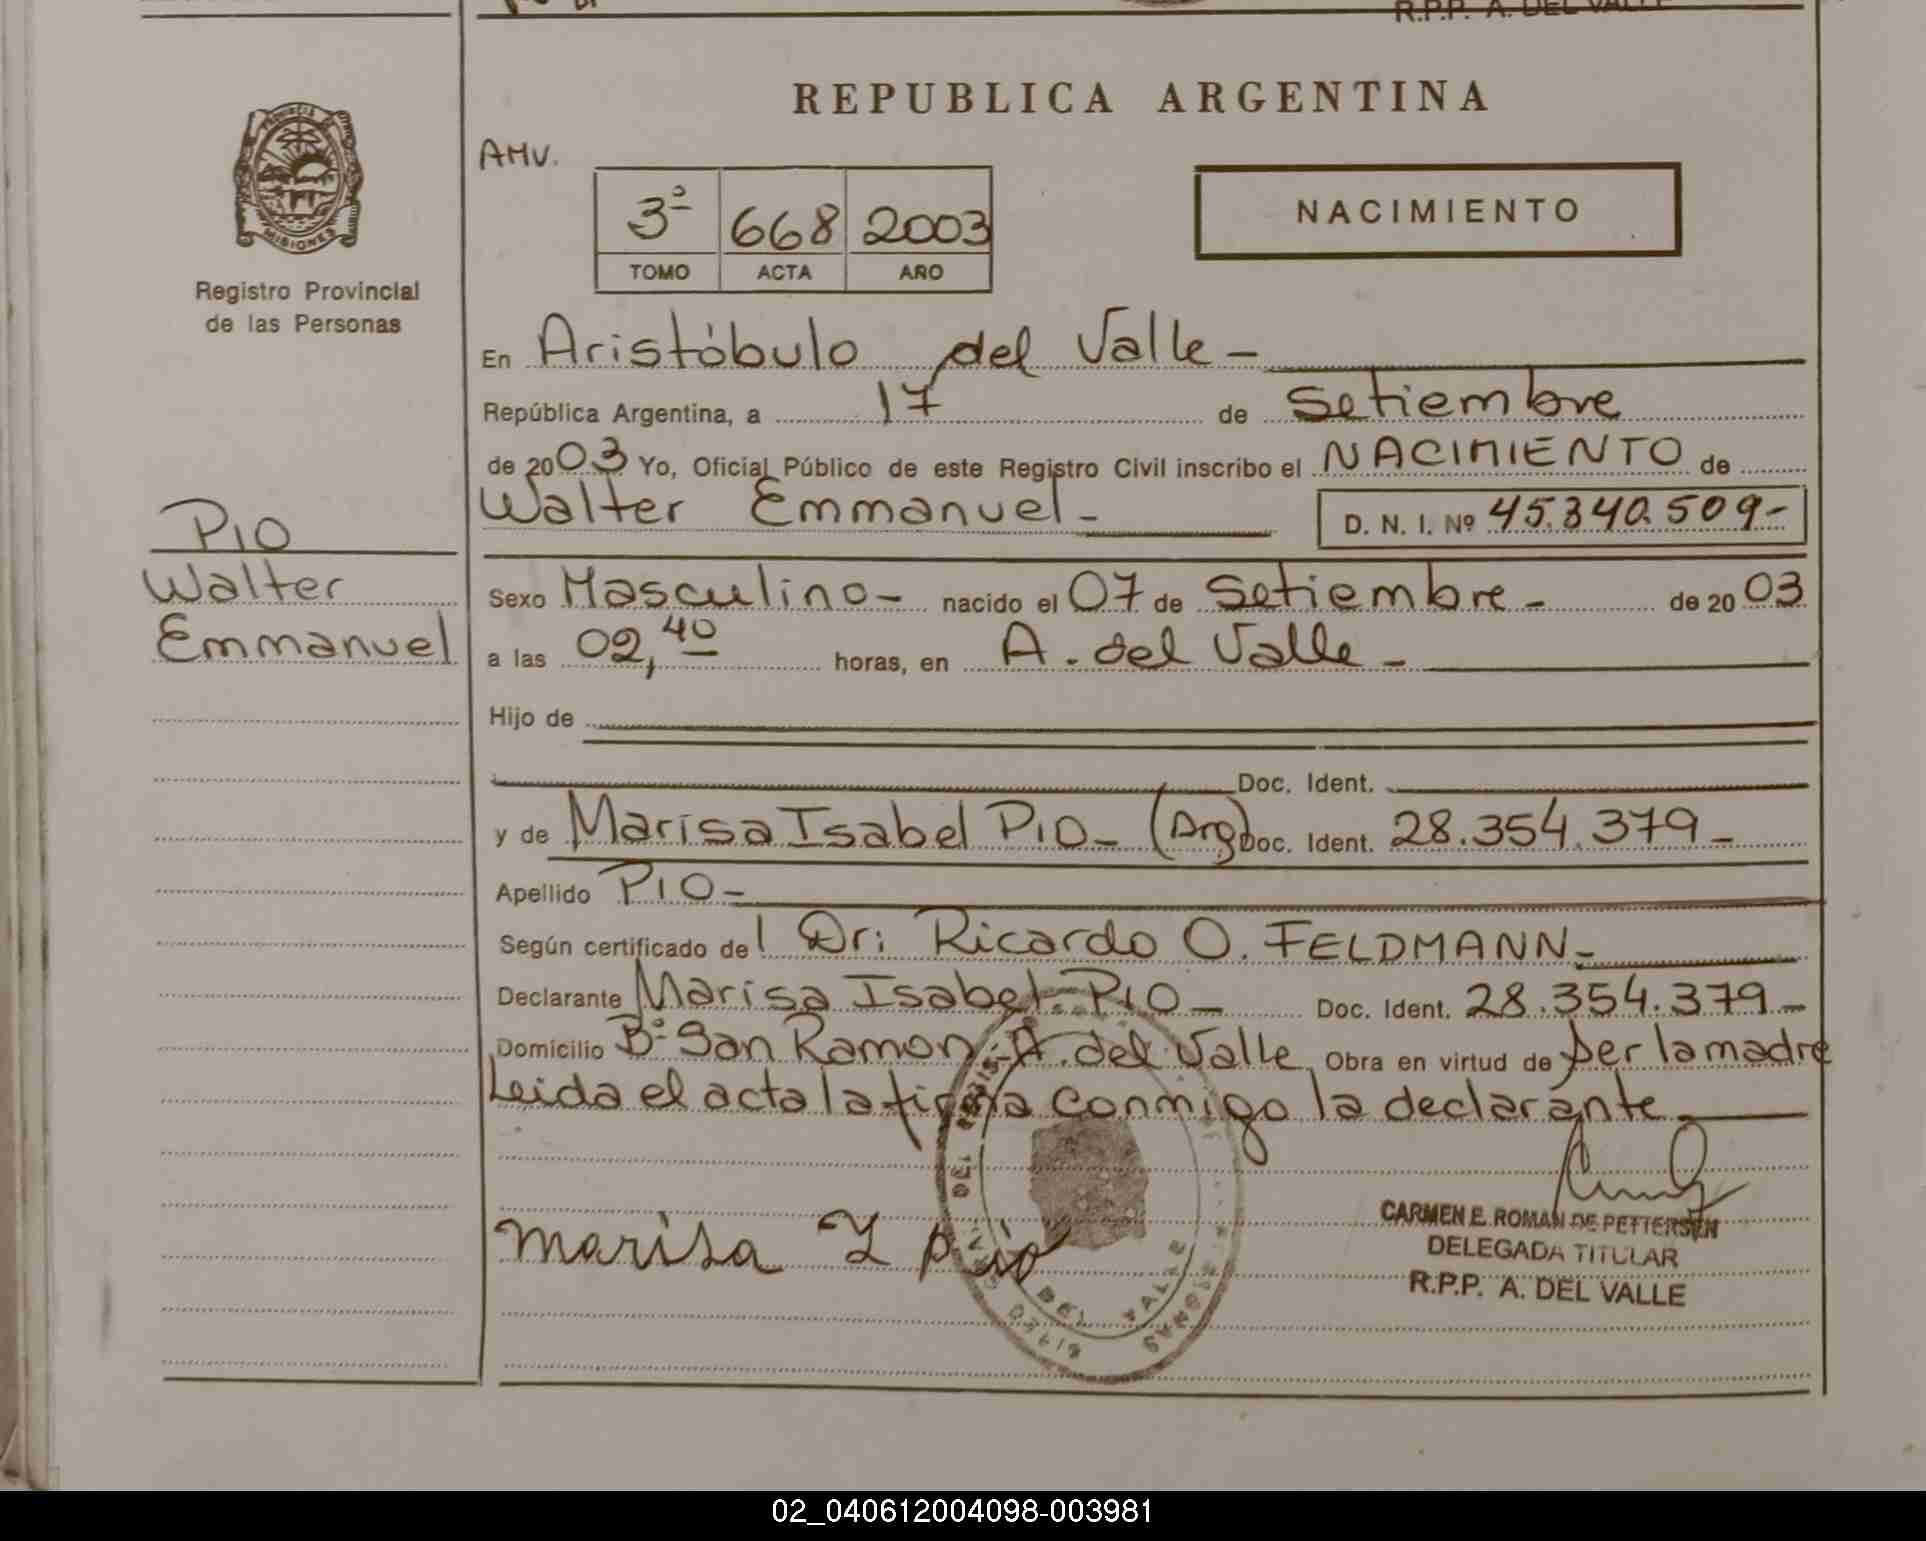 R.P.P. A. DEL VALLE
REPUBLICA ARGENTINA
PROVINCIA DE
MISIONES
Registro Provincial
de las Personas
AMV.
3º 668 2003
TOMO ACTA AÑO
NACIMIENTO
En Aristóbulo del Valle -
República Argentina, a 17 de Setiembre
de 2003 Yo, Oficial Público de este Registro Civil inscribo el NACIMIENTO de
Walter Emmanuel - D. N. I. Nº 45.340.509-
PIO
Walter
Emmanuel
Sexo Masculino - nacido el 07 de Setiembre - de 2003
a las 02,40 horas, en A. del Valle -
Hijo de
Doc. Ident.
y de Marisa Isabel PIO - (Arg) Doc. Ident. 28.354.379 -
Apellido PIO -
Según certificado del Dr: Ricardo O. FELDMANN -
Declarante Marisa Isabel PIO - Doc. Ident. 28.354.379 -
Domicilio Bº San Ramon A. del Valle Obra en virtud de ser la madre
Leida el acta la firma conmigo la declarante -
marisa I pio
CARMEN E. ROMAN DE PETTERSEN
DELEGADA TITULAR
R.P.P. A. DEL VALLE
DEL VALLE
02_040612004098-003981